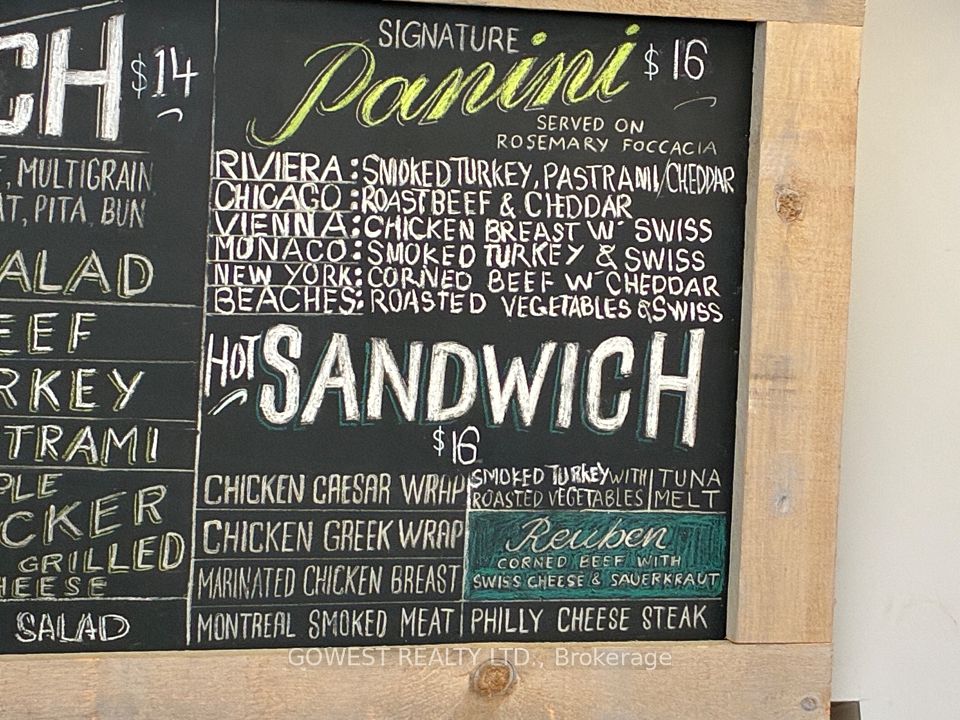 CH $14
MULTIGRAIN
PITA, BUN
ALAD
EEF
RKEY
TRAMI
PLE
CKER
GRILLED
HEESE
SALAD
SIGNATURE
Panini $16
SERVED ON
ROSEMARY FOCCACIA
RIVIERA: SMOKED TURKEY, PASTRAMI/CHEDDAR
CHICAGO: ROAST BEEF & CHEDDAR
VIENNA: CHICKEN BREAST W/ SWISS
MONACO: SMOKED TURKEY & SWISS
NEW YORK: CORNED BEEF W/ CHEDDAR
BEACHES: ROASTED VEGETABLES & SWISS
HOT SANDWICH
$16
CHICKEN CAESAR WRAP
CHICKEN GREEK WRAP
MARINATED CHICKEN BREAST
MONTREAL SMOKED MEAT
SMOKED TURKEY WITH
ROASTED VEGETABLES
TUNA
MELT
Reuben
CORNED BEEF WITH
SWISS CHEESE & SAUERKRAUT
PHILLY CHEESE STEAK
GOWEST REALTY LTD., Brokerage